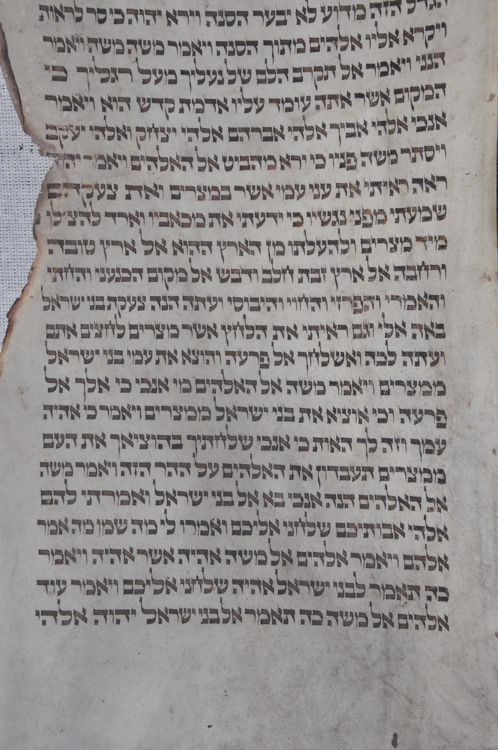 הגדל הזה מדוע לא יבער הסנה וירא יהוה כי סר לראות
ויקרא אליו אלהים מתוך הסנה ויאמר משה משה ויאמר
הנני ויאמר אל תקרב הלם של נעליך מעל רגליך כי
המקום אשר אתה עומד עליו אדמת קדש הוא ויאמר
אנכי אלהי אביך אלהי אברהם אלהי יצחק ואלהי יעקב
ויסתר משה פניו כי ירא מהביט אל האלהים ויאמר יהוה
ראה ראיתי את עני עמי אשר במצרים ואת צעקתם
שמעתי מפני נגשיו כי ידעתי את מכאביו וארד להצילו
מיד מצרים ולהעלתו מן הארץ ההוא אל ארץ טובה
ורחבה אל ארץ זבת חלב ודבש אל מקום הכנעני והחתי
והאמרי והפרזי והחוי והיבוסי ועתה הנה צעקת בני ישראל
באה אלי וגם ראיתי את הלחץ אשר מצרים לחצים אתם
ועתה לכה ואשלחך אל פרעה והוצא את עמי בני ישראל
ממצרים ויאמר משה אל האלהים מי אנכי כי אלך אל
פרעה וכי אוציא את בני ישראל ממצרים ויאמר כי אהיה
עמך וזה לך האות כי אנכי שלחתיך בהוציאך את העם
ממצרים תעבדון את האלהים על ההר הזה ויאמר משה
אל האלהים הנה אנכי בא אל בני ישראל ואמרתי להם
אלהי אבותיכם שלחני אליכם ואמרו לי מה שמו מה אמר
אלהם ויאמר אלהים אל משה אהיה אשר אהיה ויאמר
כה תאמר לבני ישראל אהיה שלחני אליכם ויאמר עוד
אלהים אל משה כה תאמר אל בני ישראל יהוה אלהי